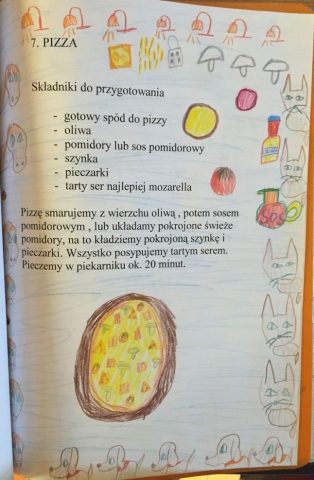 7. PIZZA
Składniki do przygotowania
- gotowy spód do pizzy
- oliwa
- pomidory lub sos pomidorowy
- szynka
- pieczarki
- tarty ser najlepiej mozarella
SOS
Pizzę smarujemy z wierzchu oliwą , potem sosem
pomidorowym , lub układamy pokrojone świeże
pomidory, na to kładziemy pokrojoną szynkę i
pieczarki. Wszystko posypujemy tartym serem.
Pieczemy w piekarniku ok. 20 minut.